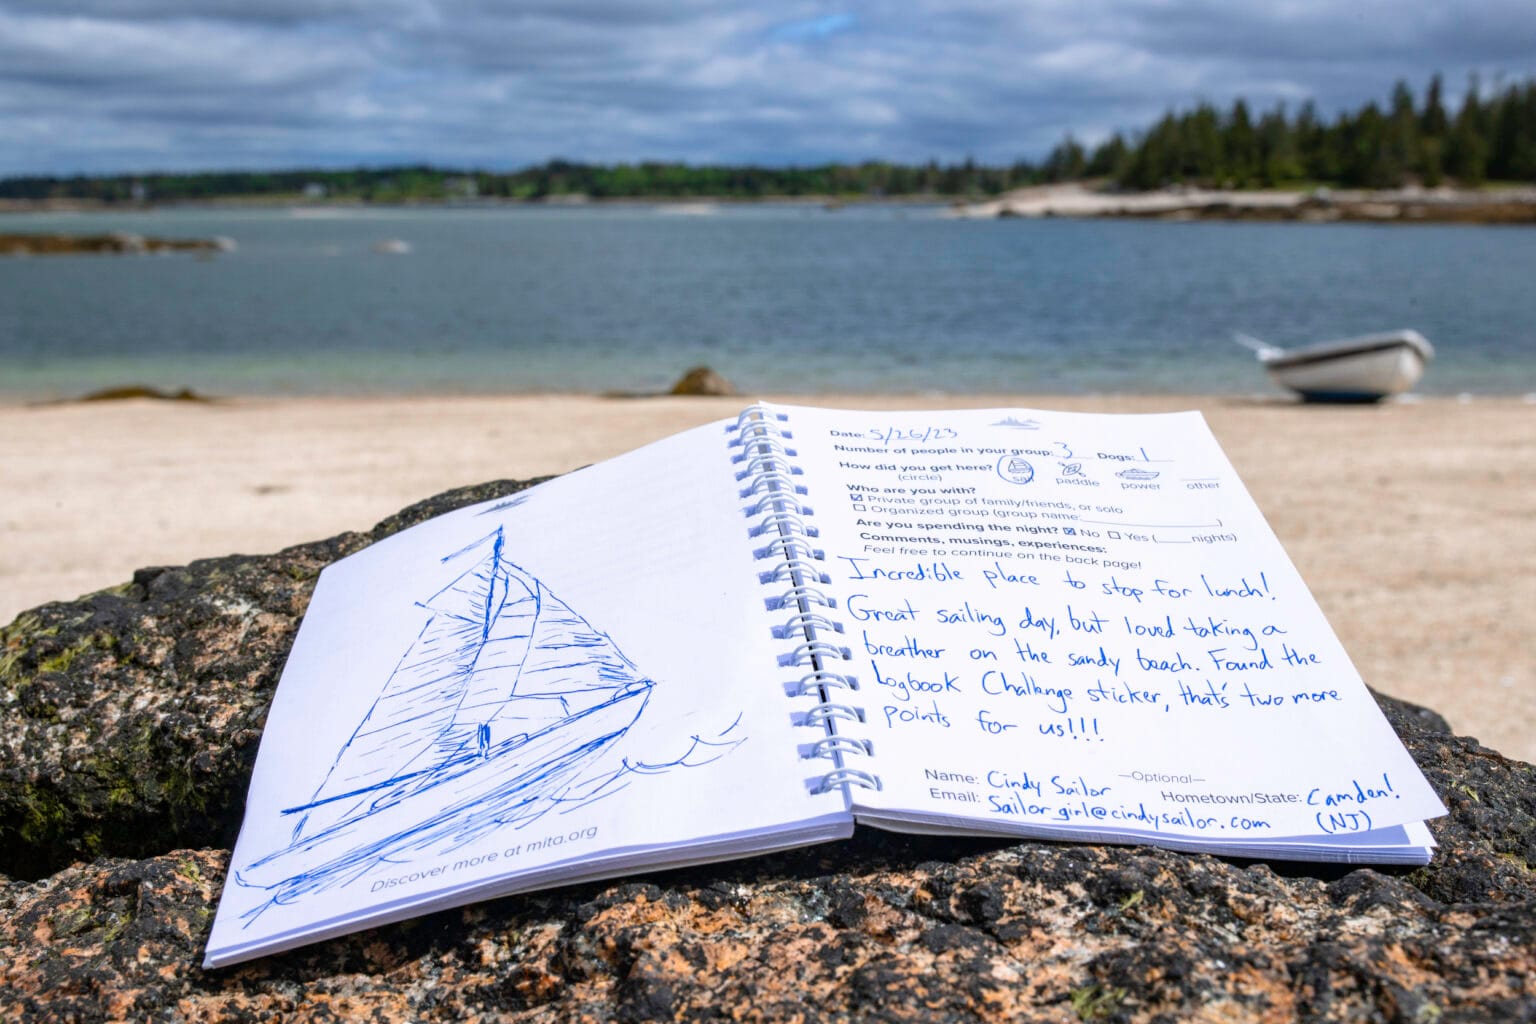 Discover more at mita.org
Date: 5/26/23
Number of people in your group: 3 Dogs: 1
How did you get here? sail paddle power other
(circle)
Who are you with?
Private group of family/friends, or solo
Organized group (group name: )
Are you spending the night? No Yes ( nights)
Comments, musings, experiences:
Feel free to continue on the back page!
Incredible place to stop for lunch!
Great sailing day, but loved taking a
breather on the sandy beach. Found the
Logbook Challenge sticker, that's two more
points for us!!!
—Optional—
Name: Cindy Sailor Hometown/State: Camden!
Email: Sailor_girl@cindysailor.com (NJ)